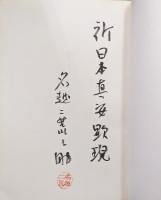 祈日本真姿顕現
名越二荒之助